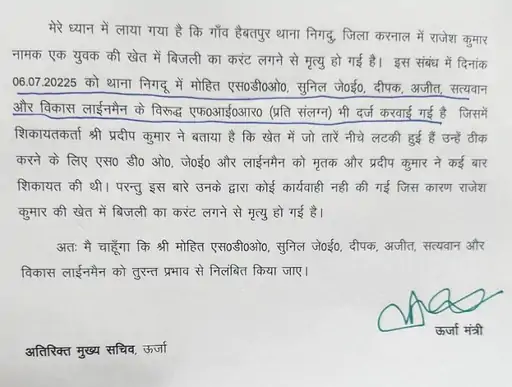 मेरे ध्यान में लाया गया है कि गाँव हैबतपुर थाना निगदु, जिला करनाल में राजेश कुमार
नामक एक युवक की खेत में बिजली का करंट लगने से मृत्यु हो गई है। इस संबंध में दिनांक
06.07.20225 को थाना निगदू में मोहित एस0डी0ओ0, सुनिल जे0ई0, दीपक, अजीत, सत्यवान
और विकास लाईनमैन के विरूद्ध एफ0आई0आर0 (प्रति संलग्न) भी दर्ज करवाई गई है जिसमें
शिकायतकर्ता श्री प्रदीप कुमार ने बताया है कि खेत में जो तारें नीचे लटकी हुई हैं उन्हें ठीक
करने के लिए एस0 डी0 ओ0, जे0ई0 और लाईनमैन को मृतक और प्रदीप कुमार ने कई बार
शिकायत की थी। परन्तु इस बारे उनके द्वारा कोई कार्यवाही नही की गई जिस कारण राजेश
कुमार की खेत में बिजली का करंट लगने से मृत्यु हो गई है।
अतः मै चाहूँगा कि श्री मोहित एस0डी0ओ0, सुनिल जे0ई0, दीपक, अजीत, सत्यवान और
विकास लाईनमैन को तुरन्त प्रभाव से निलंबित किया जाए।
ऊर्जा मंत्री
अतिरिक्त मुख्य सचिव, ऊर्जा